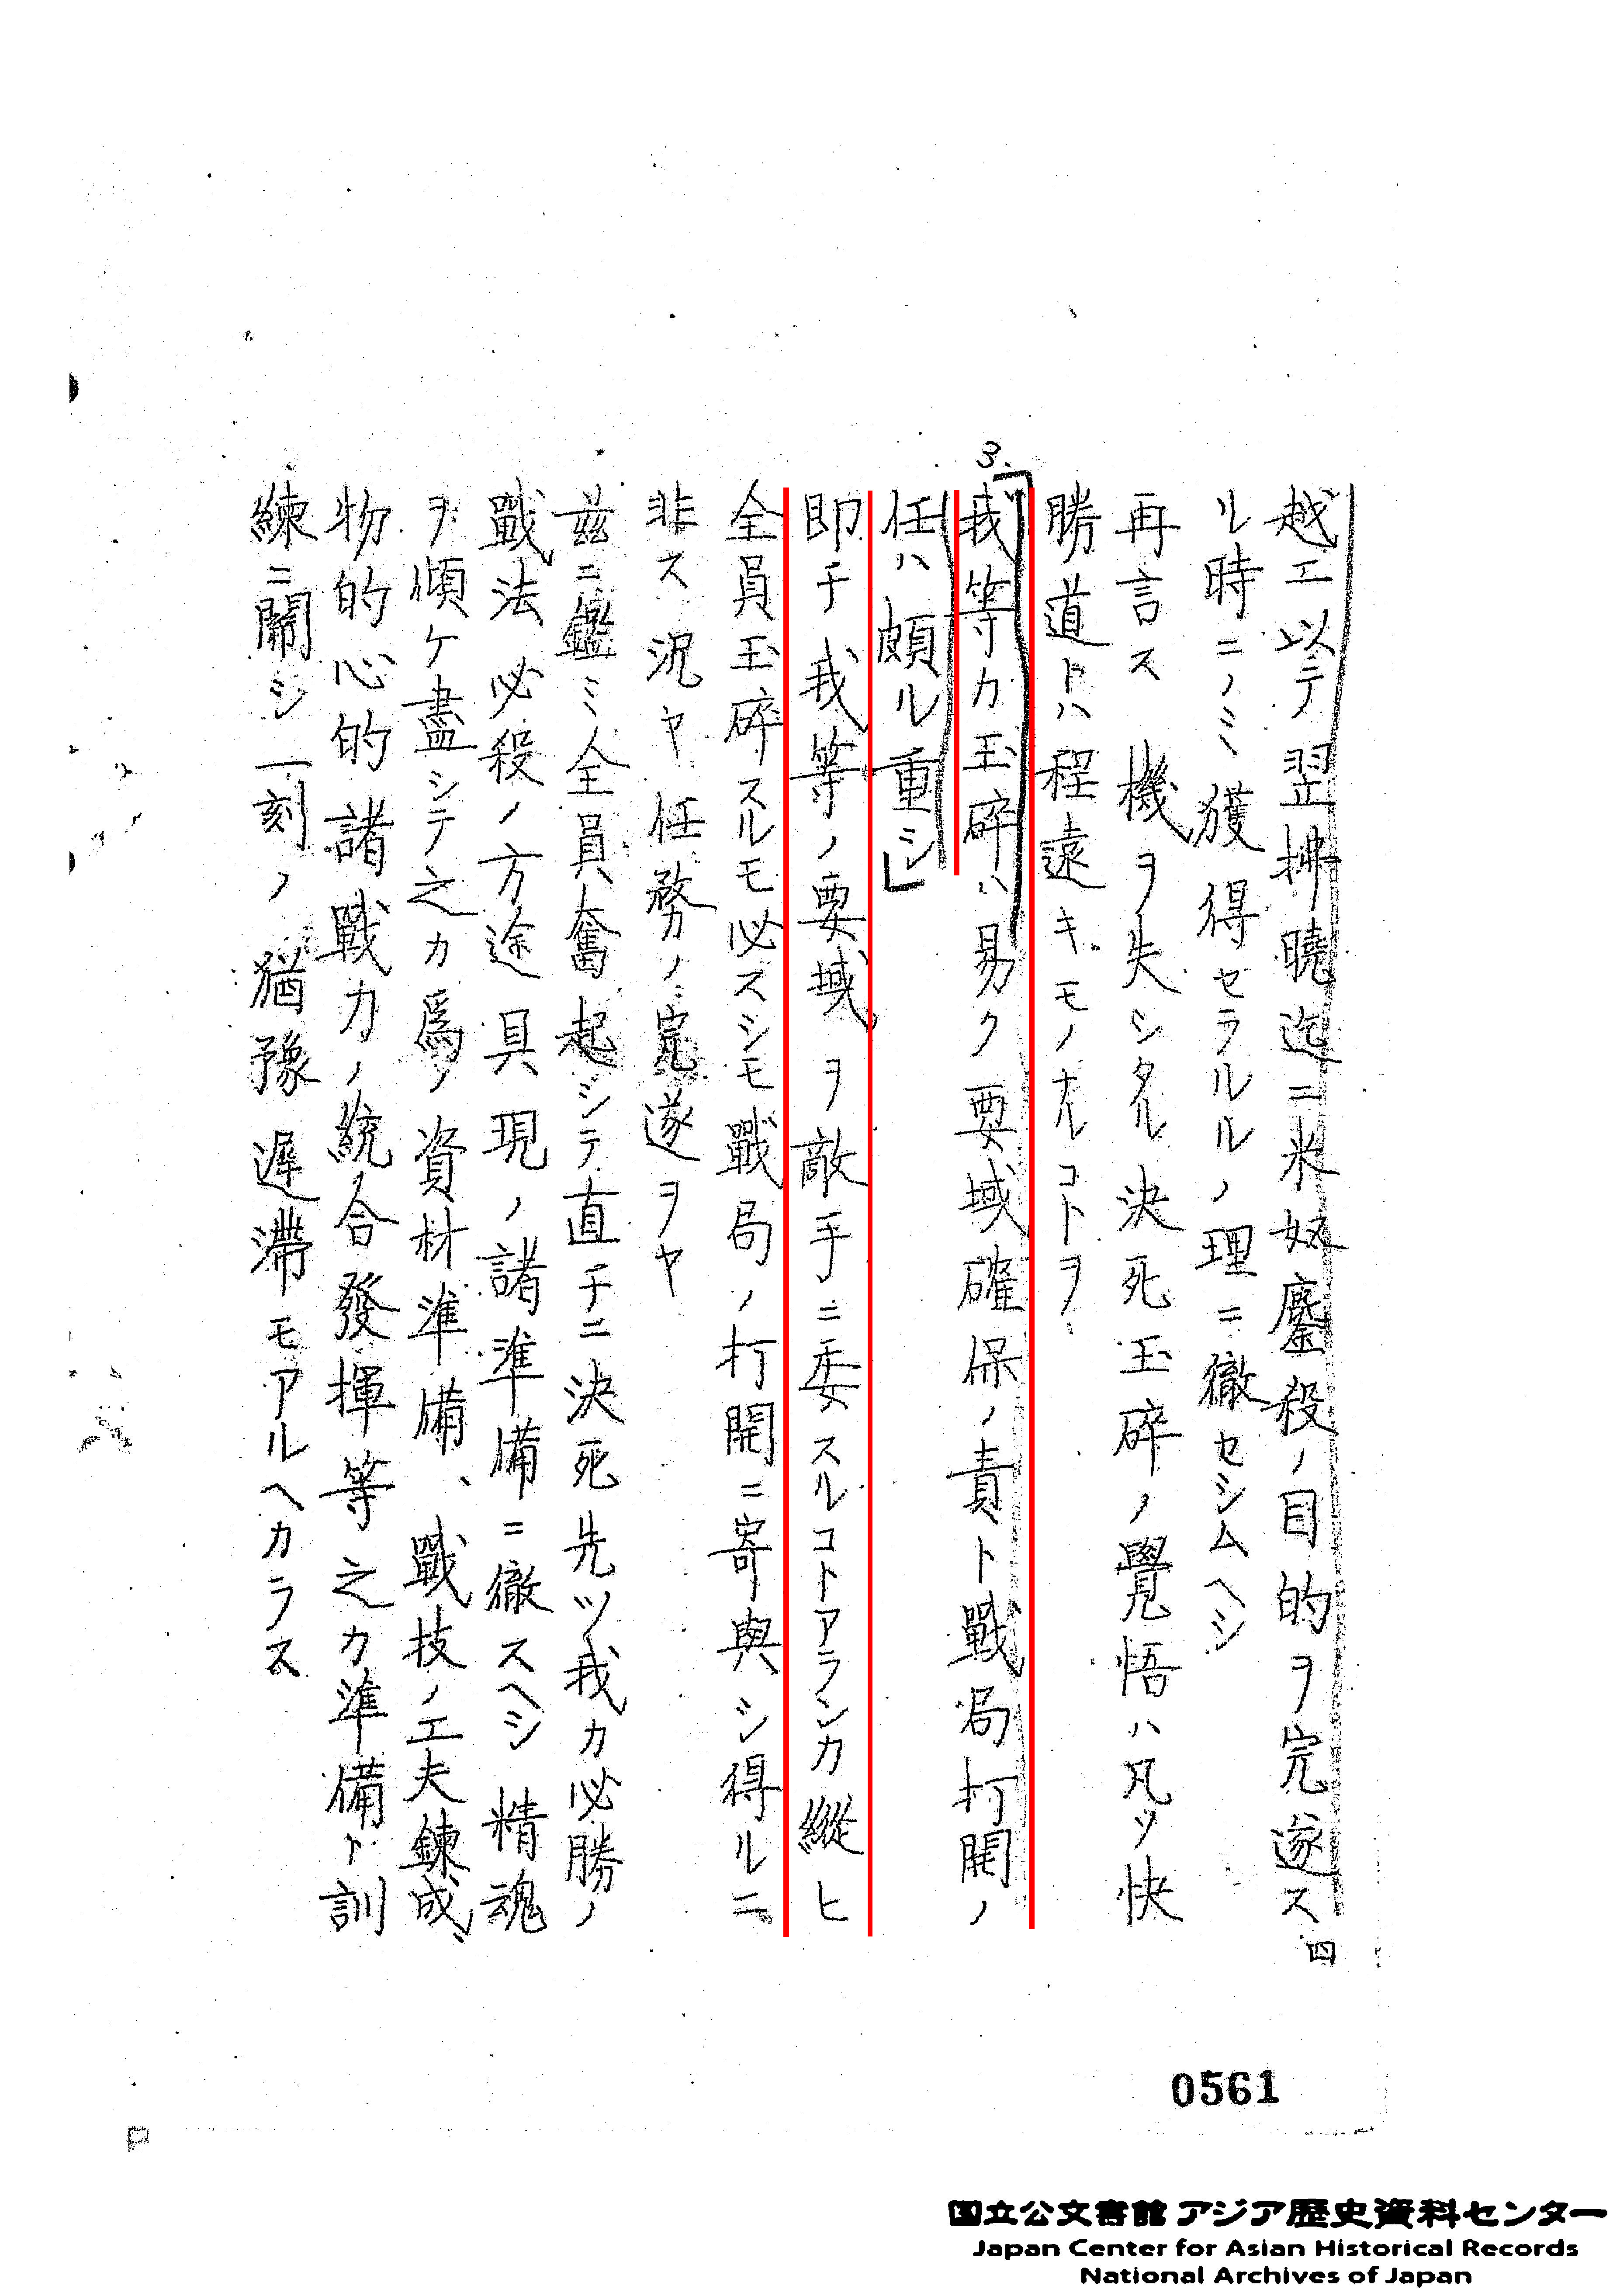 越エ以テ翌拂曉迄ニ米奴鏖殺ノ目的ヲ完遂ス
四
ル時ニノミ獲得セラルルノ理ニ徹セシムヘシ
再言ス機ヲ失シタル決死玉碎ノ覺悟ハ凡ソ快
勝道トハ程遠キモノナルコトヲ
3.
「我等カ玉碎ハ易ク要域確保ノ責ト戰局打開ノ
任ハ頗ル重シ」
即チ我等ノ要域ヲ敵手ニ委スルコトアランカ縱ヒ
全員玉碎スルモ必スシモ戰局ノ打開ニ寄與シ得ルニ
非ス況ヤ任務ノ完遂ヲヤ
茲ニ鑑ミ全員奮起シテ直チニ決死先ツ我カ必勝ノ
戰法必殺ノ方途具現ノ諸準備ニ徹スヘシ精魂
ヲ傾ケ盡シテ之カ爲ノ資材準備、戰技ノ工夫鍊成、
物的心的諸戰力ノ統合發揮等之カ準備ト訓
練ニ關シ一刻ノ猶豫遲滯モアルヘカラス
0561
国立公文書館 アジア歴史資料センター
Japan Center for Asian Historical Records
National Archives of Japan